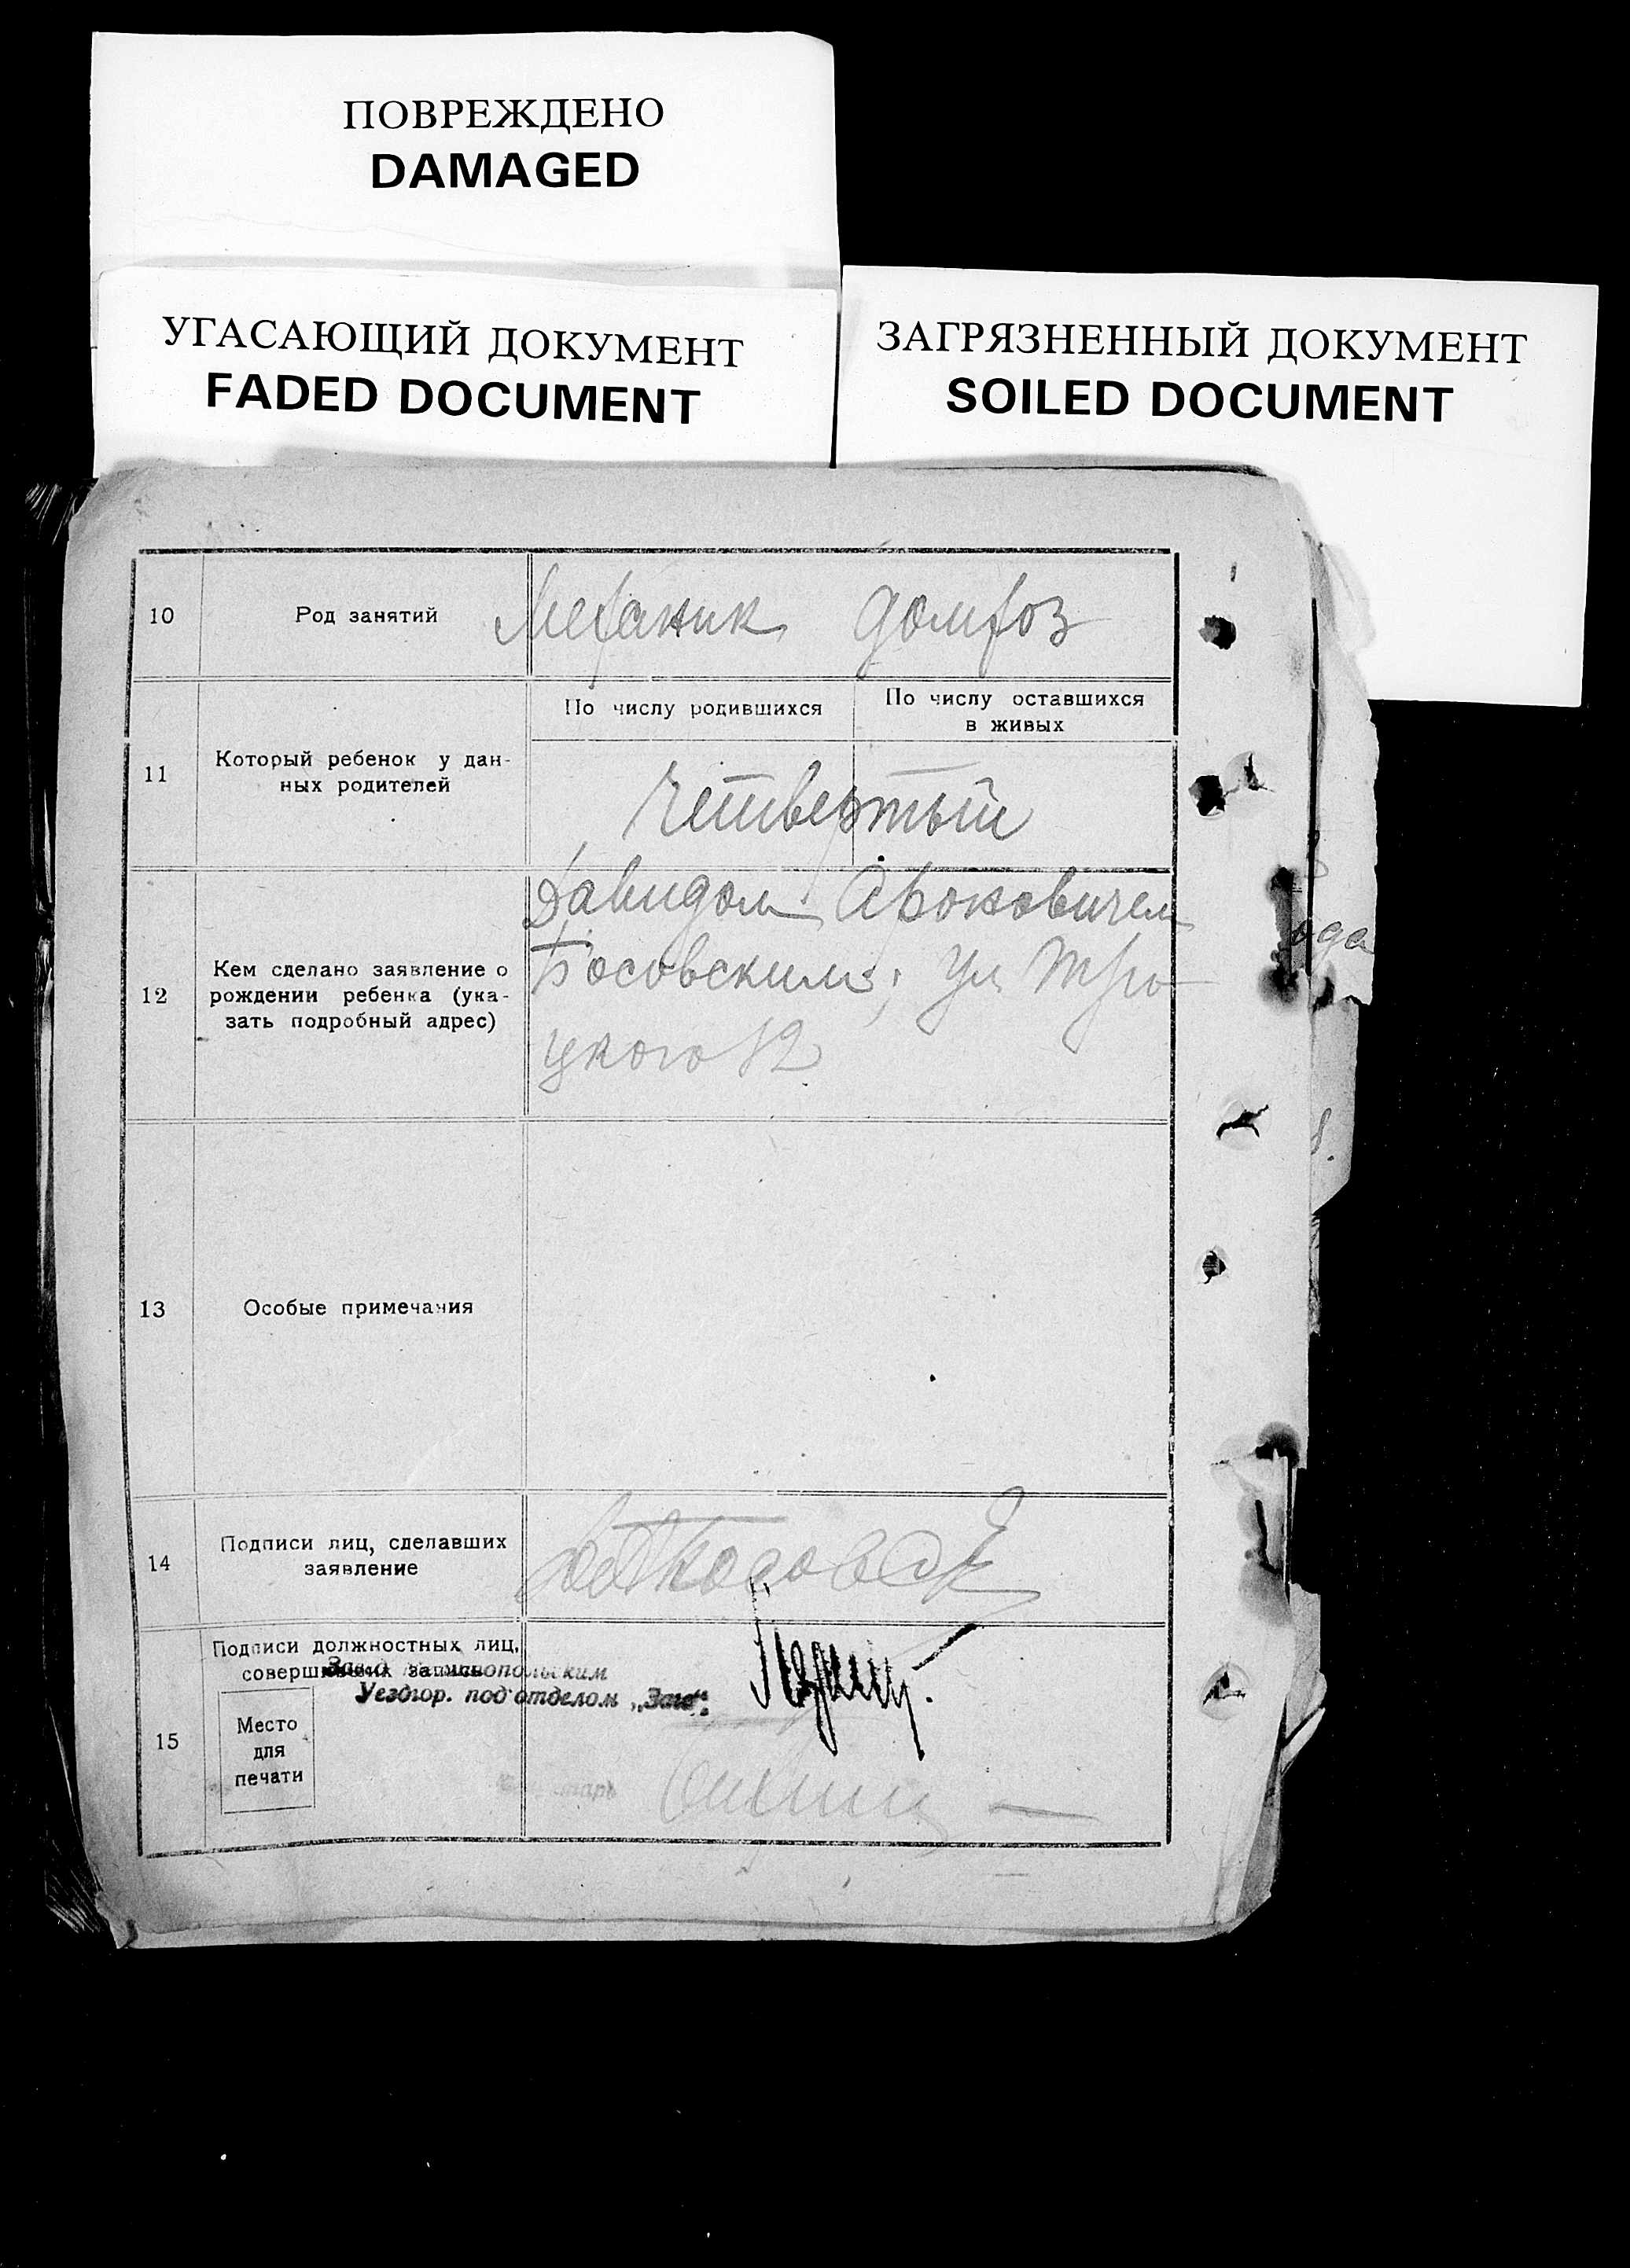 ПОВРЕЖДЕНО
DAMAGED
УГАСАЮЩИЙ ДОКУМЕНТ
FADED DOCUMENT
ЗАГРЯЗНЕННЫЙ ДОКУМЕНТ
SOILED DOCUMENT
10 Род занятий Механик домхоз
По числу родившихся По числу оставшихся
в живых
11 Который ребенок у дан-
ных родителей
Четвертый
12 Кем сделано заявление о
рождении ребенка (ука-
зать подробный адрес)
Давидом Ароновичем
Босовским; ул Тро-
цкого 12
13 Особые примечания
14 Подписи лиц, сделавших
заявление
15 Подписи должностных лиц,
совершивших запись
Уездгор. подотделом „Загс".
Место
для
печати
ода